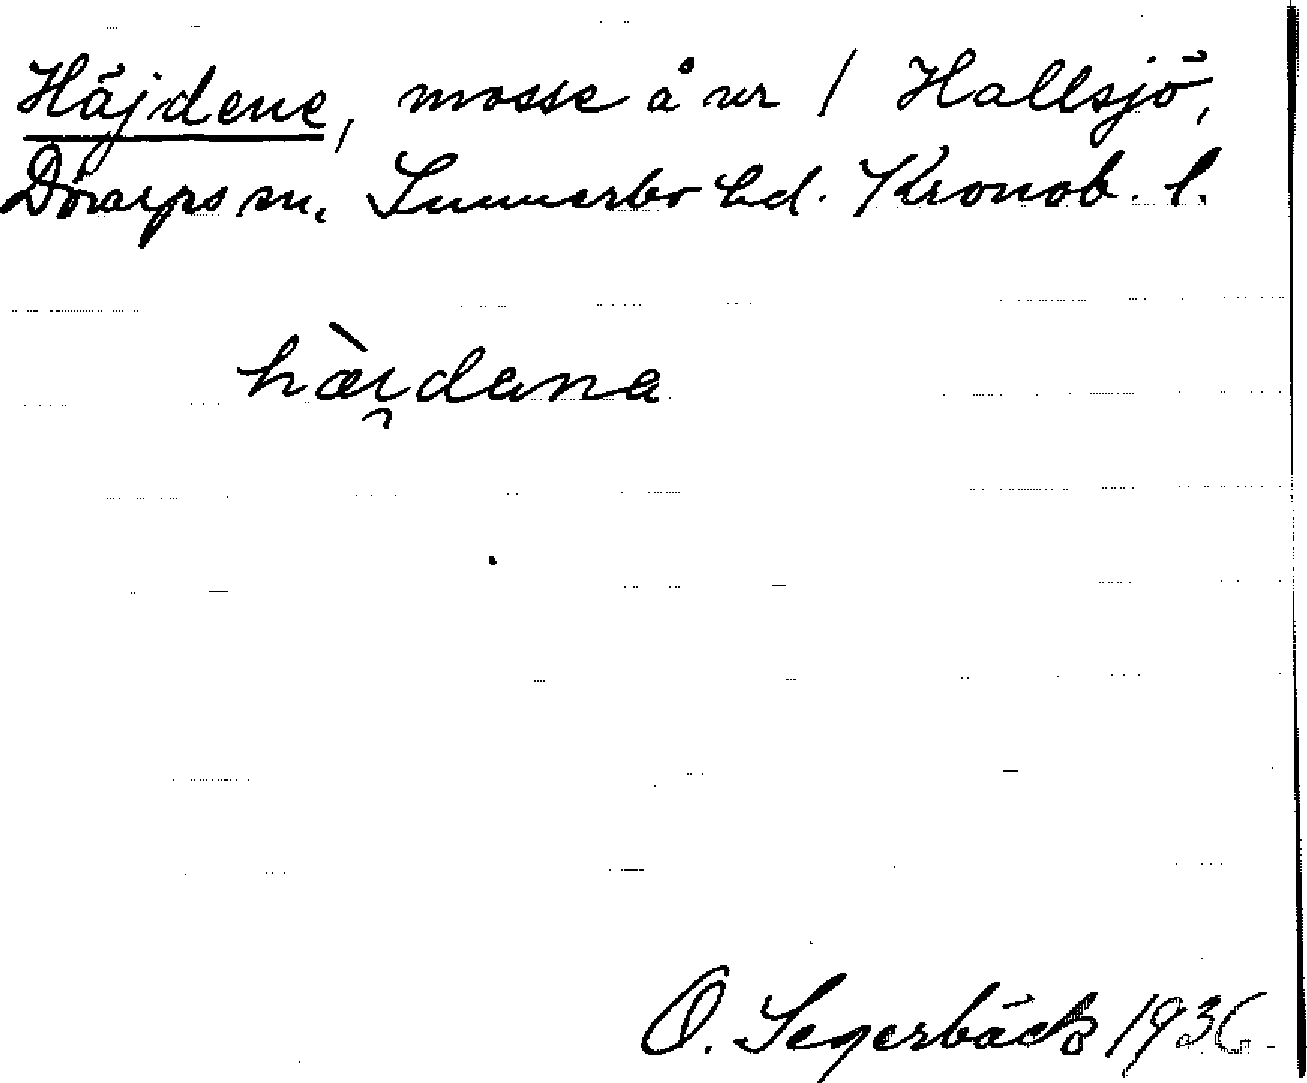 Häjdene, mosse å nr 1 Hallsjö,
Dörarps sn. Sunnerbo hd. Kronob. l.
hæ̀i̯dəna
O. Segerbäck 1936